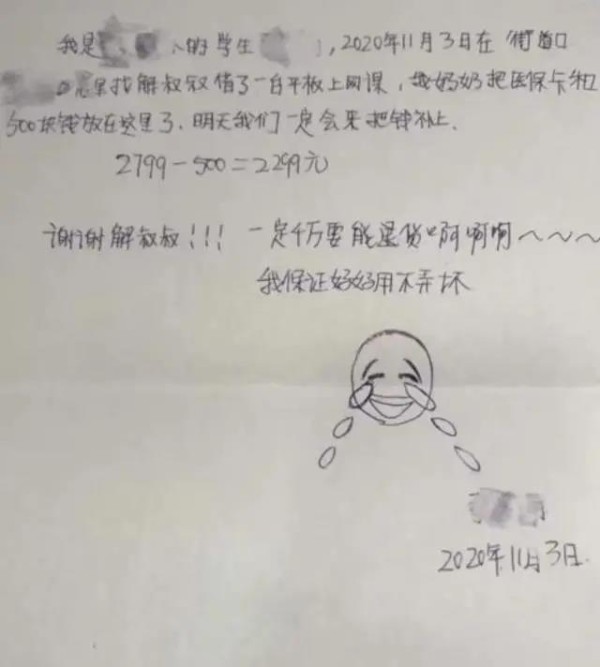 我是 的学生 ,2020年11月3日在 街道口
找解叔叔借了一台平板上网课,我奶奶把医保卡和
500块钱放在这里了,明天我们一定会来把钱补上.
2799-500=2299元
谢谢解叔叔!!! 一定千万要能退货啊啊啊~~~
我保证好好用不弄坏
2020年11月3日.